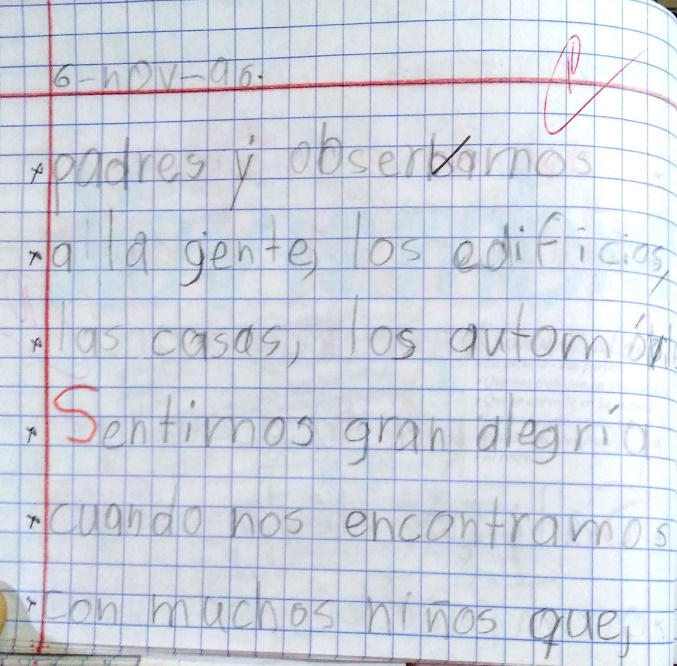 6-nov-96.
padres y observamos
a la gente, los edificios,
las casas, los
Sentimos gran alegría
cuando nos encontramos
con muchos niños que,